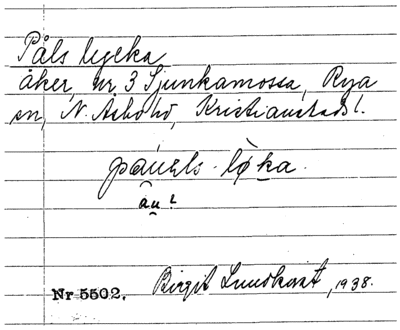 Påls lycka
åker, nr. 3 Sjunkamossa, Rya
sn, N. Åsbo hd, Kristianstads l.
på̀uɛls-lø̀ka.
au?
Nr 5502. Birgit Lundkvist, 1938.